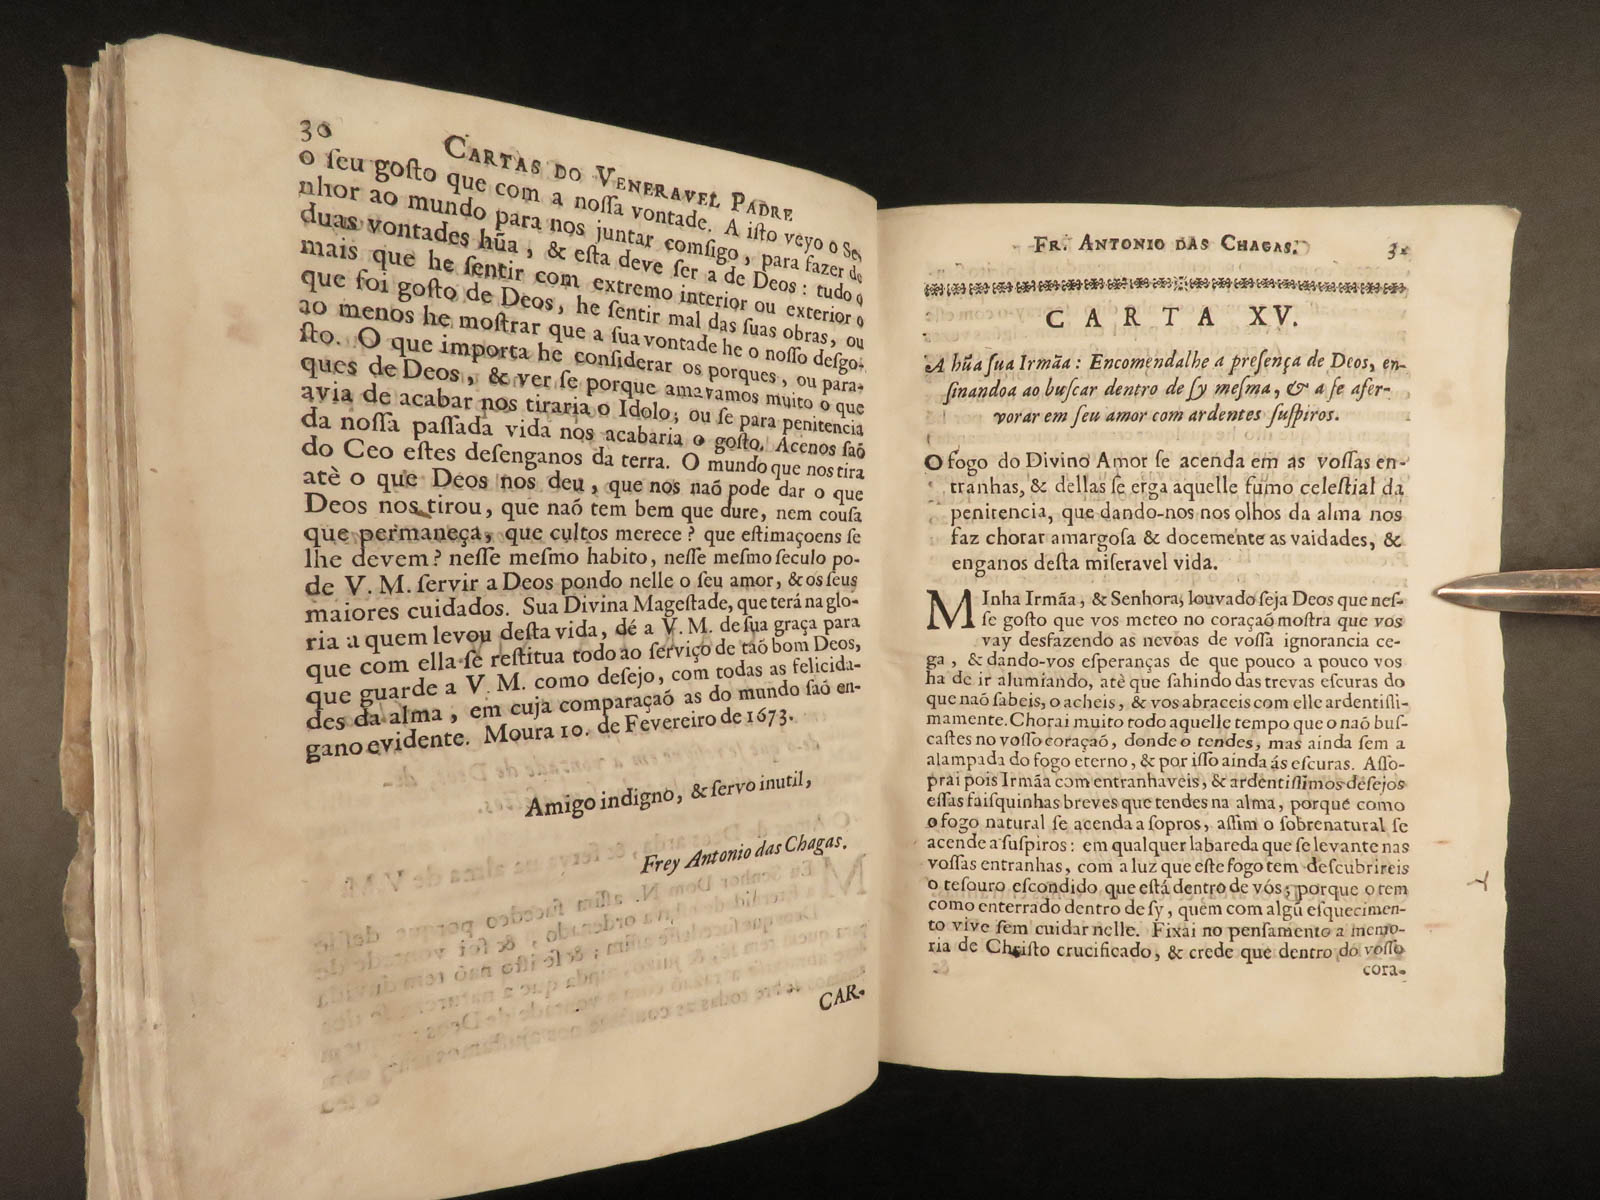 30
CARTAS DO VENERAVEL PADRE
o ſeu goſto que com a noſſa vontade. A iſto veyo o Se-
nhor ao mundo para nos juntar comſigo, para fazer de
duas vontades hũa, & eſta deve ſer a de Deos: tudo o
mais que he ſentir com extremo interior ou exterior o
que foi goſto de Deos, he ſentir mal das ſuas obras, ou
ao menos he moſtrar que a ſua vontade he o noſſo deſgo-
ſto. O que importa he conſiderar os porques, ou para-
ques de Deos, & ver ſe porque amavamos muito o que
avia de acabar nos tiraria o Idolo; ou ſe para penitencia
da noſſa paſſada vida nos acabaria o goſto. Acenos ſaõ
do Ceo eſtes deſenganos da terra. O mundo que nos tira
atè o que Deos nos deu, que nos naõ pode dar o que
Deos nos tirou, que naõ tem bem que dure, nem couſa
que permaneça, que cultos merece? que eſtimaçoens ſe
lhe devem? neſſe meſmo habito, neſſe meſmo ſeculo po-
de V. M. ſervir a Deos pondo nelle o ſeu amor, & os ſeus
maiores cuidados. Sua Divina Mageſtade, que terá na glo-
ria a quem levou deſta vida, dé a V. M. de ſua graça para
que com ella ſe reſtitua todo ao ſerviço de taõ bom Deos,
que guarde a V. M. como deſejo, com todas as felicida-
des da alma, em cuja comparaçaõ as do mundo ſaõ en-
gano evidente. Moura 10. de Fevereiro de 1673.
Amigo indigno, & ſervo inutil,
Frey Antonio das Chagas.
CAR-
FR. ANTONIO DAS CHAGAS.
31
CARTA XV.
A hũa ſua Irmãa: Encomendalhe a preſença de Deos, en-
ſinandoa ao buſcar dentro de ſy meſma, & a ſe afer-
vorar em ſeu amor com ardentes ſuſpiros.
O fogo do Divino Amor ſe acenda em as voſſas en-
tranhas, & dellas ſe erga aquelle fumo celeſtial da
penitencia, que dando-nos nos olhos da alma nos
faz chorar amargoſa & docemente as vaidades, &
enganos deſta miſeravel vida.
MInha Irmãa, & Senhora, louvado ſeja Deos que neſ-
ſe goſto que vos meteo no coraçaõ moſtra que vos
vay desfazendo as nevoas de voſſa ignorancia ce-
ga, & dando-vos eſperanças de que pouco a pouco vos
ha de ir alumiando, atè que ſahindo das trevas eſcuras do
que naõ ſabeis, o acheis, & vos abraceis com elle ardentiſſi-
mamente. Chorai muito todo aquelle tempo que o naõ buſ-
caſtes no voſſo coraçaõ, donde o tendes, mas ainda ſem a
alampada do fogo eterno, & por iſſo ainda ás eſcuras. Aſſo-
prai pois Irmãa com entranhaveis, & ardentiſſimos deſejos
eſſas faiſquinhas breves que tendes na alma, porque como
o fogo natural ſe acenda a ſopros, aſſim o ſobrenatural ſe
acende a ſuſpiros: em qualquer labareda que ſe levante nas
voſſas entranhas, com a luz que eſte fogo tem deſcubrireis
o teſouro eſcondido que eſtá dentro de vós; porque o tem
como enterrado dentro de ſy, quem com algũ eſquecimen-
to vive ſem cuidar nelle. Fixai no penſamento a memo-
ria de Chriſto crucificado, & crede que dentro do voſſo
cora-